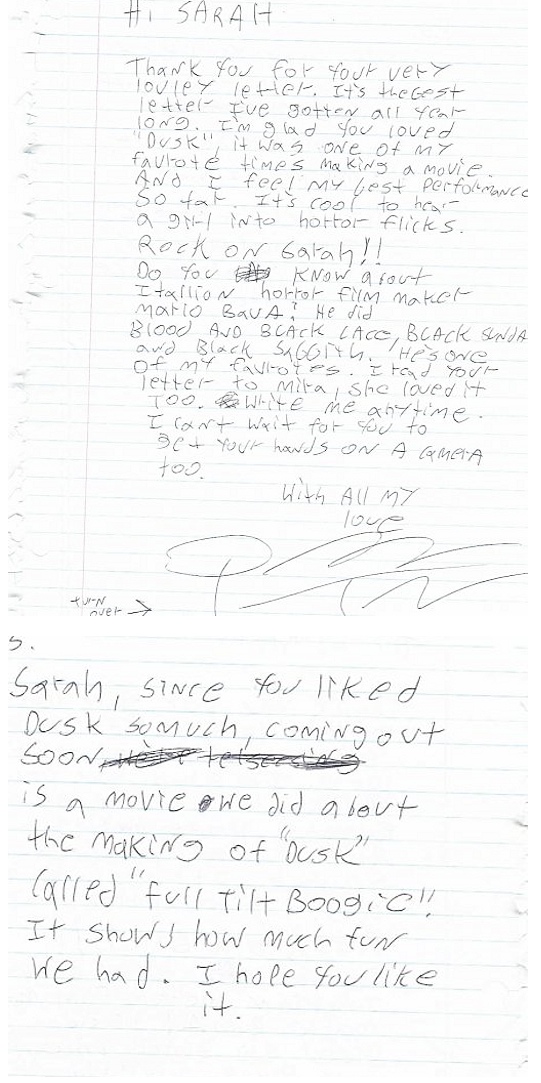 HI SARAH
Thank you for your very
lovley letter. It's the best
letter I've gotten all year
long. I'm glad you loved
"Dusk", it was one of my
favrote times making a movie.
And I feel my best performance
So far. It's cool to hear
a girl into horror flicks.
Rock on Sarah!!
Do you know about
Itallion horror film maker
Mario Bava? He did
Blood AND BLAck LAce, BLAck SUNDA
and Black Sabbith. He's one
Of my favrotes. I read your
letter to Mira, she loved it
Too. Write me anytime.
I can't wait for you to
get your hands on A camera
too.
With All my
love
turn
over →
S.
Sarah, since you liked
Dusk so much, coming out
soon,
is a movie we did about
the making of "Dusk"
Called "full Tilt Boogie".
It shows how much fun
We had. I hope you like
it.